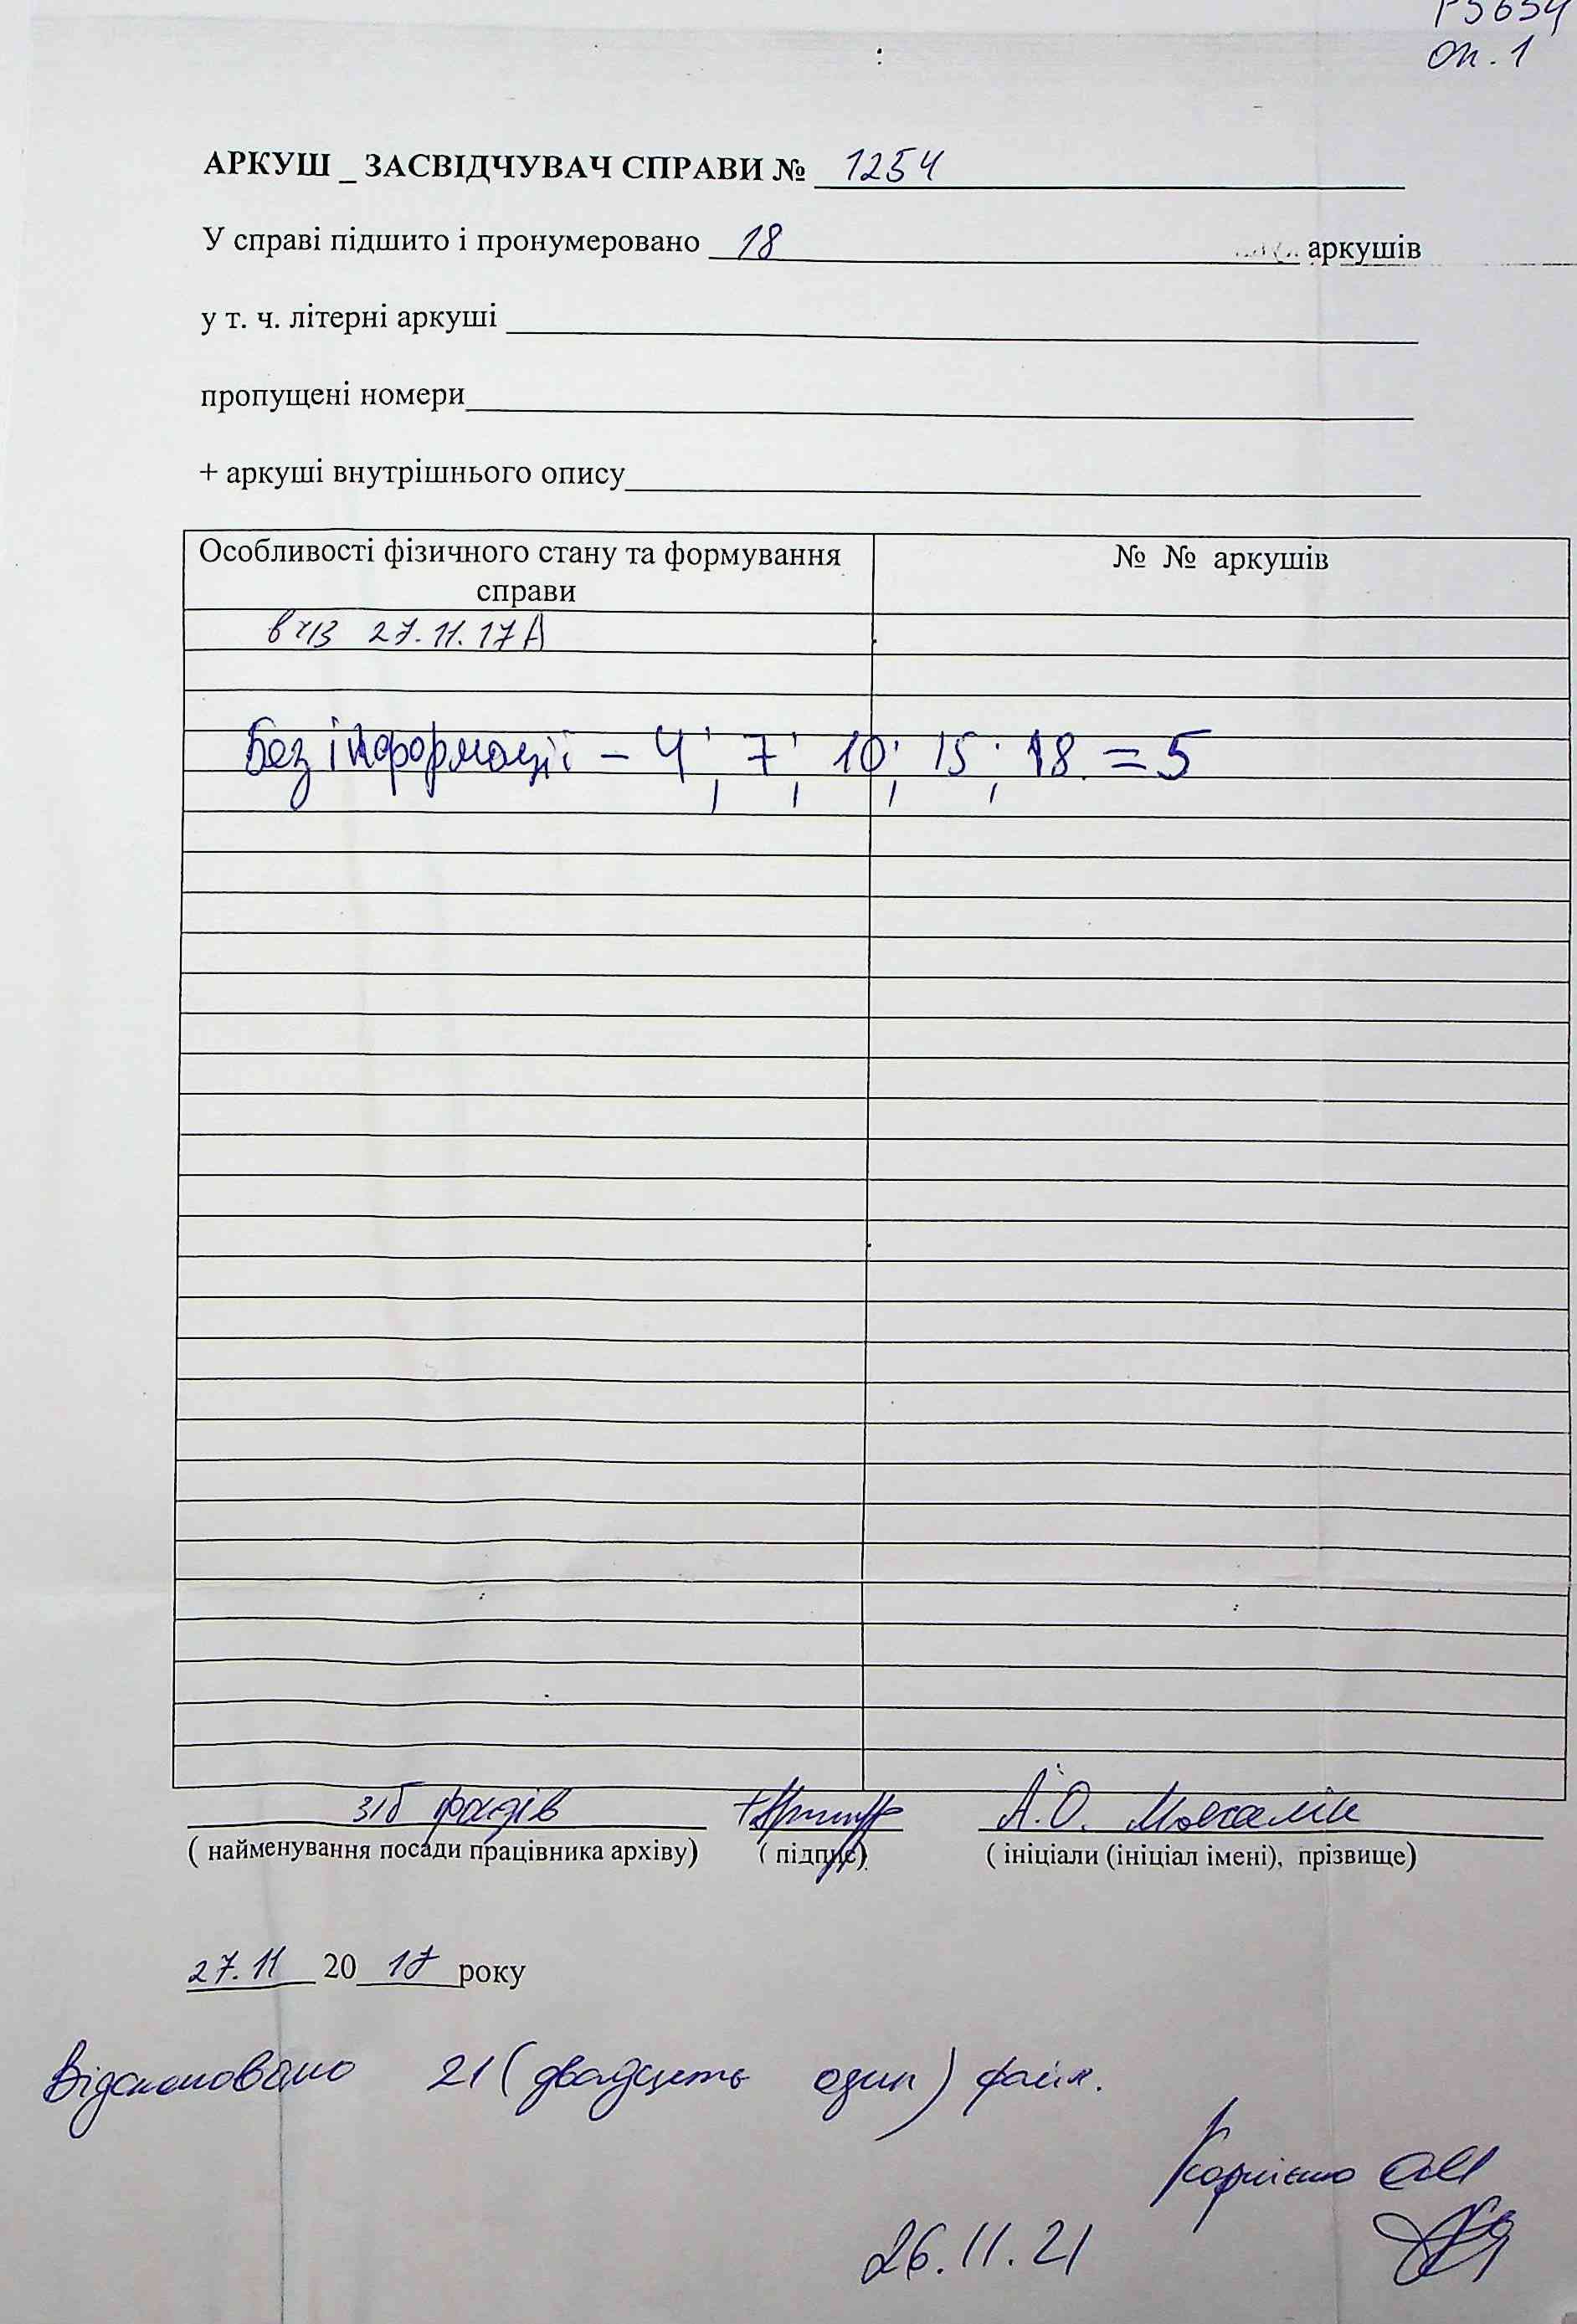 Р5654
оп. 1
АРКУШ _ ЗАСВІДЧУВАЧ СПРАВИ № 1254
У справі підшито і пронумеровано 18 аркушів
у т. ч. літерні аркуші
пропущені номери
+ аркуші внутрішнього опису
Особливості фізичного стану та формування справи
№ № аркушів
27.11.17
Без інформації – 4, 7, 10, 15, 18. = 5
зіб фондів А.О.
( найменування посади працівника архіву) ( підпис) ( ініціали (ініціал імені), прізвище)
27.11 20 17 року
Відскановано 21 (двадцять один) файл.
Корнієнко
26.11.21